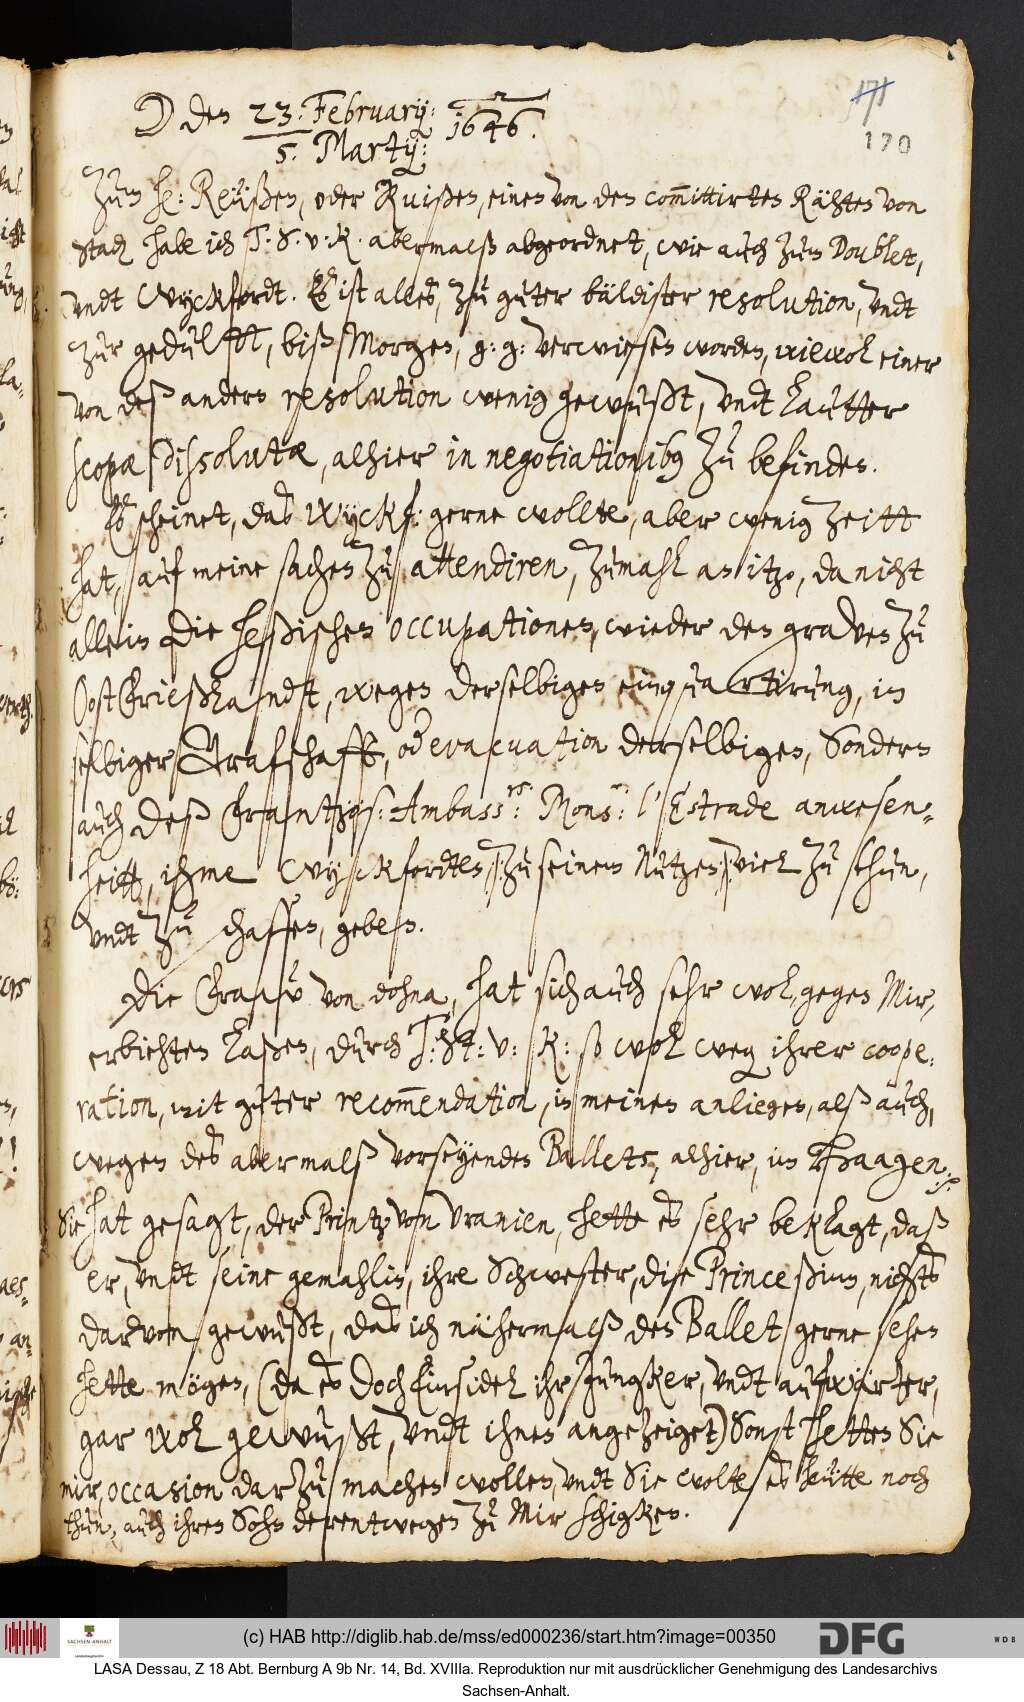 171
170
☽ den 23. February: 1646.
5. Martzÿ:
Zum H: Reüßen, oder Ruißen, einen von den com̄ittirten Rähten von
Stadt habe ich T. S. v. K. abermalß abgeordnet, wie auch zum Doublet,
undt Wyckfordt. Es ist alles, zu guter bäldister resolution, undt
zur gedulft, biß Morgen, g: g: verwiesen worden, wiewol einer
von deß andern resolution wenig gewußt, undt lautter
scopæ dissolutæ, alhier in negotiationibus zu befinden.
Es scheinet, das Wyckf: gerne wollte, aber wenig zeitt
hat, auf meine sachen zu attendiren, zumahl an itzo, da nicht
allein die Heßischen occupationen, wieder den graven zu
OostFrießlandt, wegen derselbigen einquartirung, in
selbiger Grafschafft, od evacuation derselbigen, Sondern
auch deß Frantzös: Ambassrs: Mons: l'Estrade anwesen-
heitt, ihme Wyckfordten /: zu seinem Nutzen :/ viel zu thun,
undt zu schaffen, geben.
Die Fraw von dohna, hat sich auch sehr wol, gegen Mir,
erbiehten laßen, durch T: St: v: K: so wol weg ihrer coope-
ration, mit guter recom̄endation, in meinen anliegen, alß auch,
wegen des abermalß vorseyenden Ballets, alhier, im Haagen.
Sie hat gesagt, der Printz von Uranien, hette es sehr beklagt, daß
er, undt seine gemahlin, ihre Schwester, die Princeßinn, nichts
darvon gewußt, das ich nähermalß den Ballet gerne sehen
hette mögen, (da es doch Einsidel ihr Jungker, undt aufwärter,
gar wol gewußt, undt ihnen angezeiget) Sonst hetten Sie
mir, occasion darzu machen wollen, undt Sie wolten es heütte noch
thun, auch ihren Sohn derentwegen zu Mir schigken.
SACHSEN-ANHALT
(c) HAB http://diglib.hab.de/mss/ed000236/start.htm?image=00350
DFG
WDB
LASA Dessau, Z 18 Abt. Bernburg A 9b Nr. 14, Bd. XVIIIa. Reproduktion nur mit ausdrücklicher Genehmigung des Landesarchivs
Sachsen-Anhalt.